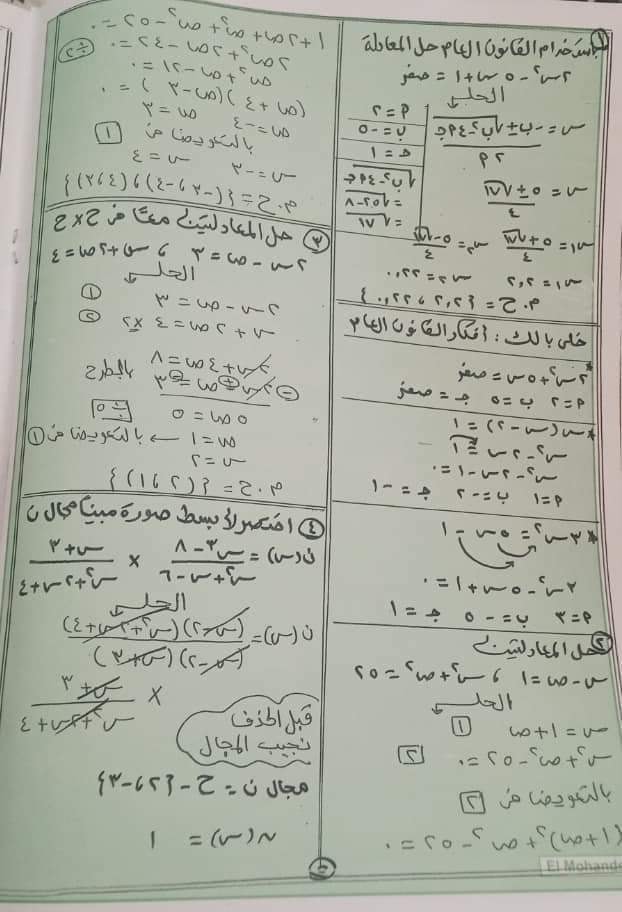 ١ باستخدام القانون العام حل المعادلة
٢س² - ٥س + ١ = صفر
الحل
س = -ب ± √ب² - ٤أج / ٢أ
أ = ٢
ب = -٥
ج = ١
√ب² - ٤أج
= √٢٥ - ٨
= √١٧
س = ٥ ± √١٧ / ٤
س١ = ٥ + √١٧ / ٤ س٢ = ٥ - √١٧ / ٤
س١ = ٢,٢ س٢ = ٠,٢٢
م.ح = {٢,٢ ، ٠,٢٢}
خلى بالك : أفكار القانون العام
* ٢س² + ٥س = صفر
أ = ٢ ب = ٥ ج = صفر
* س(س - ٢) = ١
س² - ٢س = ١
س² - ٢س - ١ = ٠
أ = ١ ب = -٢ ج = -١
* ٣س² = ٥س - ١
٣س² - ٥س + ١ = ٠
أ = ٣ ب = -٥ ج = ١
٢ حل المعادلتين
س - ص = ١ ، س² + ص² = ٢٥
الحل
س = ١ + ص ١
س² + ص² - ٢٥ = ٠ ٢
بالتعويض في ٢
(١ + ص)² + ص² - ٢٥ = ٠
١ + ٢ص + ص² + ص² - ٢٥ = ٠
٢ص² + ٢ص - ٢٤ = ٠ ÷٢
ص² + ص - ١٢ = ٠
(ص + ٤)(ص - ٣) = ٠
ص = -٤ ص = ٣
بالتعويض في ١
س = -٣ س = ٤
م.ح = {(-٣ ، -٤) ، (٤ ، ٣)}
٣ حل المعادلتين معًا في ح × ح
٢س - ص = ٣ ، س + ٢ص = ٤
الحل
٢س - ص = ٣ ١
س + ٢ص = ٤ ×٢ ٢
٢س + ٤ص = ٨
٢س - ص = ٣ بالطرح
٥ص = ٥ ÷٥
ص = ١ ← بالتعويض في ١
س = ٢
م.ح = {(٢ ، ١)}
٤ اختصر لأبسط صورة مبينا مجال ن
ن(س) = س³ - ٨ / س² + س - ٦ × س + ٣ / س² + ٢س + ٤
الحل
ن(س) = (س - ٢)(س² + ٢س + ٤) / (س - ٢)(س + ٣)
× س + ٣ / س² + ٢س + ٤
قبل الحذف
نجيب المجال
مجال ن = ح - {٢ ، -٣}
ن(س) = ١
El Mohand